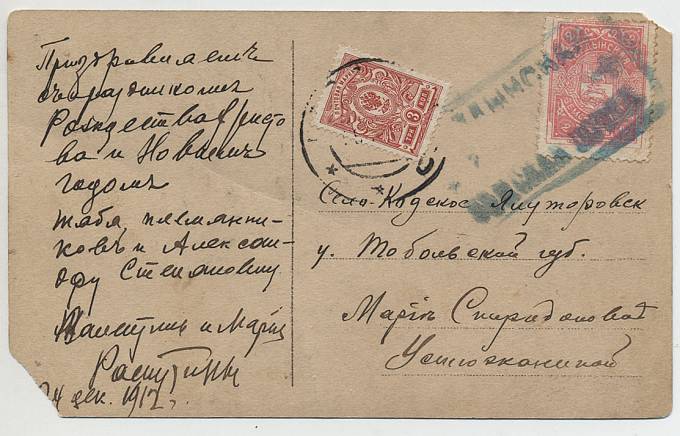 Поздравляемъ
съ праздникомъ
Рождества Христо
ва и Новымъ
годомъ
тебя, племянни-
ковъ и Алексан-
дру Степановну
и Марія
Распутины
24 дек. 1912 г.
3 КОП
Село-Кодское Ялуторовск
у. Тобольской губ.
Маріи Спиридоновнѣ
Устюжаниной